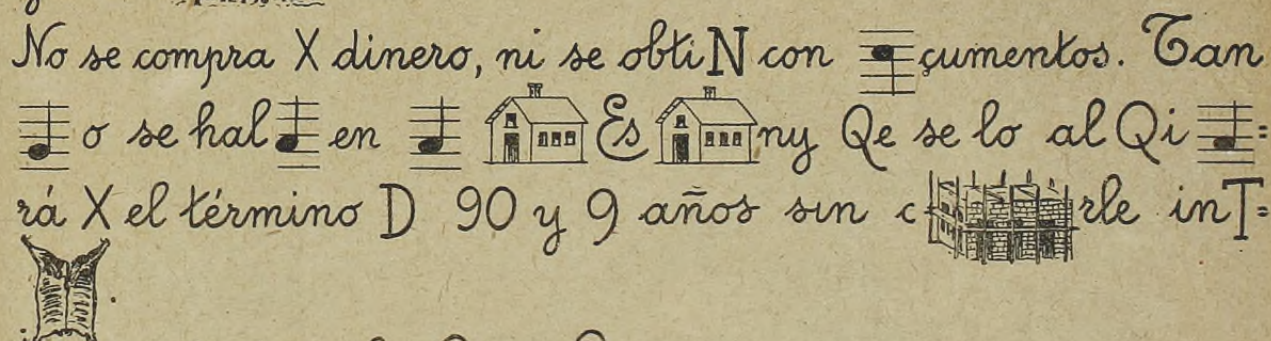 No se compra X dinero, ni se obtiN con çumentos. Tan
o se hal en Es ny Qe se lo al Qi =
rá X el término D 90 y 9 años sin c rle inT=
.